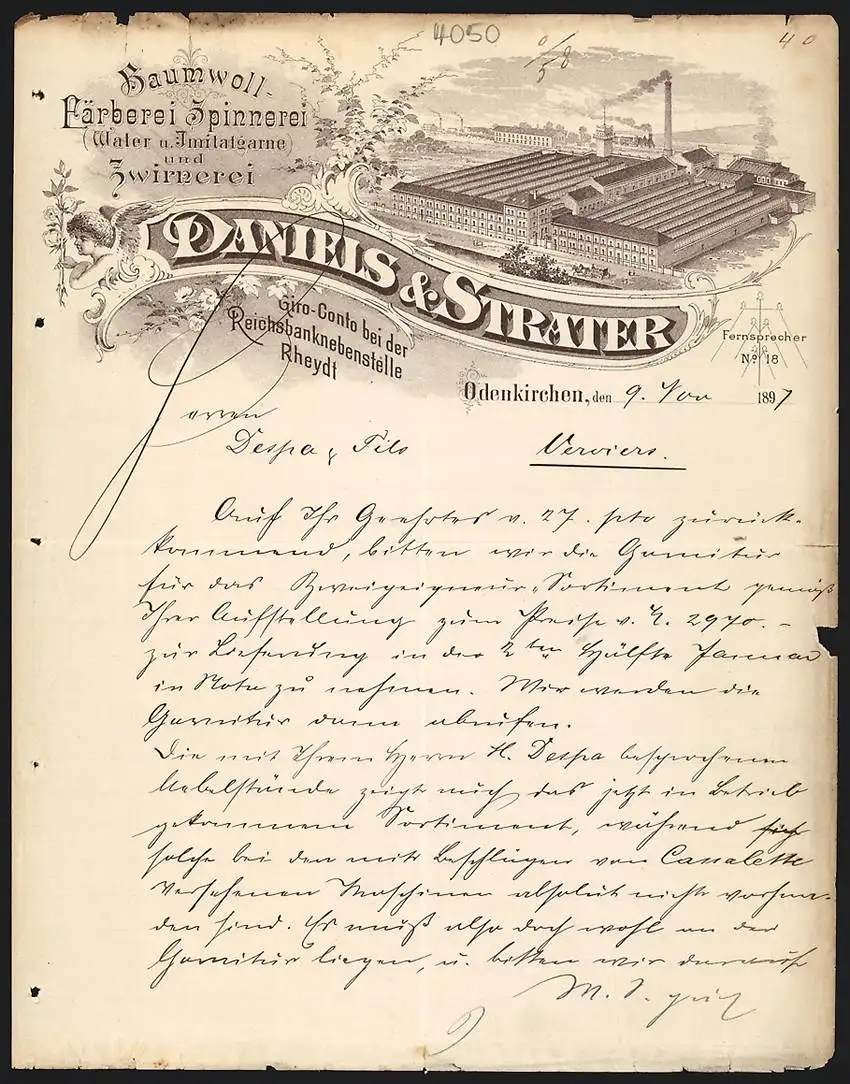 4050
40
Baumwoll-
Färberei Spinnerei
(Water u. Imitatgarne)
und
Zwirnerei
DANIELS & STRATER
Giro-Conto bei der
Reichsbanknebenstelle
Rheydt
Fernsprecher
No 18
Odenkirchen, den 9. Nov 1897
Herren
Despa & Fils Verviers.
Auf Ihr Geehrtes v. 27. pto zurück-
kommend, bitten wir die Garnitur
für das Zweipeigneur-Sortiment gemäß
Ihrer Aufstellung zum Preise v. 2970.-
zur Lieferung in der 2ten Hälfte Januar
in Nota zu nehmen. Wir werden die
Garnitur dann abrufen.
Die mit Ihrem Herrn H. Despa besprochenen
Uebelstände zeigt auch das jetzt in Betrieb
gekommene Sortiment, während
solche bei den mit Beschlägen von Cassalette
versehenen Maschinen absolut nicht vorhan-
den sind. Es muß also doch wohl an der
Garnitur liegen, u. bitten wir darauf